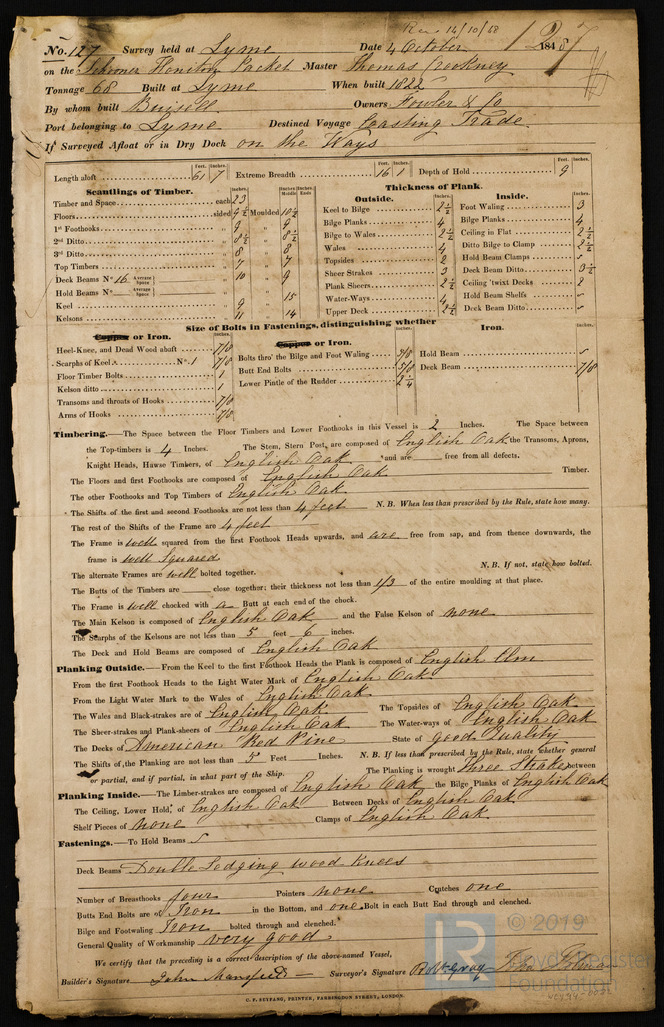 Rec 14/10/48
No. 127 Survey held at Lyme Date 4 October 1848
on the Schooner Honiton Packet Master Thomas Crockney
Tonnage 68 Built at Lyme When built 1822
By whom built Buisell Owners Fowler & Co
Port belonging to Lyme Destined Voyage Coasting Trade
If Surveyed Afloat or in Dry Dock on the Ways
Length aloft Feet. Inches. 61 7 Extreme Breadth Feet. Inches. 16 1 Depth of Hold Feet. Inches. 9
Scantlings of Timber.
Timber and Space each 23
Floors sided 9 1/2 Moulded 10 1/2
1st Foothooks 9 " 9
2nd Ditto 8 1/2 " 8 1/2
3rd Ditto 8 " 8
Top Timbers 7 " 7
Deck Beams No. 16 Average Space 10 " 9
Hold Beams No. Average Space " 15
Keel 9 " 
Kelsons 11 " 14
Thickness of Plank.
Outside.
Keel to Bilge 2 1/2
Bilge Planks 4
Bilge to Wales 2 1/2
Wales 4
Topsides 2
Sheer Strakes 3
Plank Sheers 2 1/2
Water-Ways 4
Upper Deck 2 1/2
Inside.
Foot Waling 3
Bilge Planks 4
Ceiling in Flat 2 1/2
Ditto Bilge to Clamp 2 1/2
Hold Beam Clamps
Deck Beam Ditto 3 1/2
Ceiling 'twixt Decks 2
Hold Beam Shelfs
Deck Beam Ditto
Size of Bolts in Fastenings, distinguishing whether
Copper or Iron.
Heel-Knee, and Dead Wood abaft 7/8
Scarphs of Keel No. 1 7/8
Floor Timber Bolts 1
Kelson ditto 1
Transoms and throats of Hooks 7/8
Arms of Hooks 7/8
Copper or Iron.
Bolts thro' the Bilge and Foot Waling 5/8
Butt End Bolts 5/8
Lower Pintle of the Rudder 2 1/4
Iron.
Hold Beam
Deck Beam 7/8
Timbering.—The Space between the Floor Timbers and Lower Foothooks in this Vessel is 2 Inches. The Space between
the Top-timbers is 4 Inches. The Stem, Stern Post, are composed of English Oak the Transoms, Aprons,
Knight Heads, Hawse Timbers, of English Oak and are free from all defects.
The Floors and first Foothooks are composed of English Oak Timber.
The other Foothooks and Top Timbers of English Oak
The Shifts of the first and second Foothooks are not less than 4 feet N. B. When less than prescribed by the Rule, state how many.
The rest of the Shifts of the Frame are 4 feet
The Frame is well squared from the first Foothook Heads upwards, and are free from sap, and from thence downwards, the
frame is well Squared
The alternate Frames are well bolted together. N. B. If not, state how bolted.
The Butts of the Timbers are close together; their thickness not less than 1/3 of the entire moulding at that place.
The Frame is well chocked with a Butt at each end of the chock.
The Main Kelson is composed of English Oak and the False Kelson of none
The Scarphs of the Kelsons are not less than 5 feet 6 inches.
The Deck and Hold Beams are composed of English Oak
Planking Outside.—From the Keel to the first Foothook Heads the Plank is composed of English Elm
From the first Foothook Heads to the Light Water Mark of English Oak
From the Light Water Mark to the Wales of English Oak
The Wales and Black-strakes are of English Oak The Topsides of English Oak
The Sheer-strakes and Plank-sheers of English Oak The Water-ways of English Oak
The Decks of American Red Pine State of good Quality
The Shifts of the Planking are not less than 5 Feet Inches. N. B. If less than prescribed by the Rule, state whether general
or partial, and if partial, in what part of the Ship. The Planking is wrought Three Strakes between
Planking Inside.—The Limber-strakes are composed of English Oak the Bilge Planks of English Oak
The Ceiling, Lower Hold, of English Oak Between Decks of English Oak
Shelf Pieces of none Clamps of English Oak
Fastenings.—To Hold Beams
Deck Beams Double Lodging wood knees
Number of Breasthooks four Pointers none Crutches one
Butts End Bolts are of Iron in the Bottom, and one Bolt in each Butt End through and clenched.
Bilge and Footwaling Iron bolted through and clenched.
General Quality of Workmanship very good
We certify that the preceding is a correct description of the above-named Vessel,
Builder's Signature John Mansfield Surveyor's Signature
C. F. SEYFANG, PRINTER, FARRINGDON STREET, LONDON.
LR © 2019
Lloyd's Register
Foundation